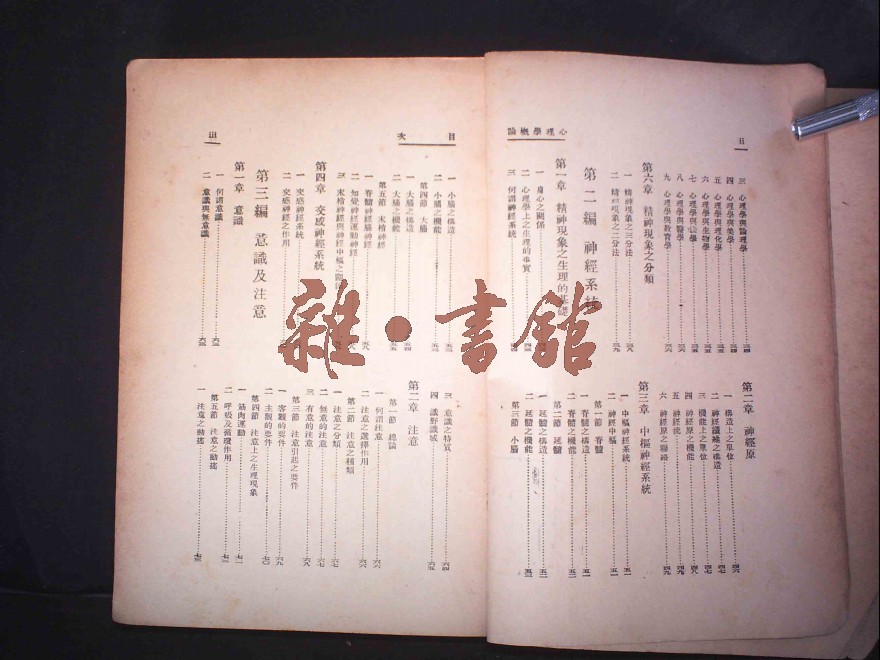 心理學概論
ii
三 心理學與論理學……三四
四 心理學與美學……三四
五 心理學與理化學……三五
六 心理學與生物學……三五
七 心理學與法學
八 心理學與醫學
九 心理學與教育學
第六章 精神現象之分類
一 精神現象之三分法……三八
二 精神現象之二分法……三九
第二編 神經系統
第一章 精神現象之生理的基礎
一 身心之關係
二 心理學上之生理的事實
三 何謂神經系統
第二章 神經原
一 構造上之單位……四六
二 神經纖維之構造……四七
三 機能上之單位……四七
四 神經原之機能……四八
五 神經流……四九
六 神經原之聯絡……四九
第三章 中樞神經系統
一 中樞神經系統……五一
二 神經中樞……五一
第一節 脊髓
一 脊髓之構造……五一
二 脊髓之機能
第二節 延髓
一 延髓之構造
二 延髓之機能
第三節 小腦
目次
iii
一 小腦之構造
二 小腦之機能
第四節 大腦
一 大腦之構造
二 大腦之機能
第五節 末梢神經
一 脊髓神經腦神經
二 知覺神經運動神經
三 末梢神經與神經中樞之關係
第四章 交感神經系統
一 交感神經系統
二 交感神經之作用
第三編 意識及注意
第一章 意識
一 何謂意識……六三
二 意識與無意識……六三
三 意識之特質……六四
四 識野識域……六五
第二章 注意
第一節 總論
一 何謂注意……六六
二 注意之選擇作用……六六
第二節 注意之種類
一 注意之分類……六七
二 無意的注意……六七
三 有意的注意……六八
第三節 注意引起之要件
一 客觀的要件……六九
二 主觀的要件……七〇
第四節 注意上之生理現象
一 筋肉運動……七一
二 呼吸及循環作用……七二
第五節 注意之動搖
一 注意之動搖……七三
雜·書館